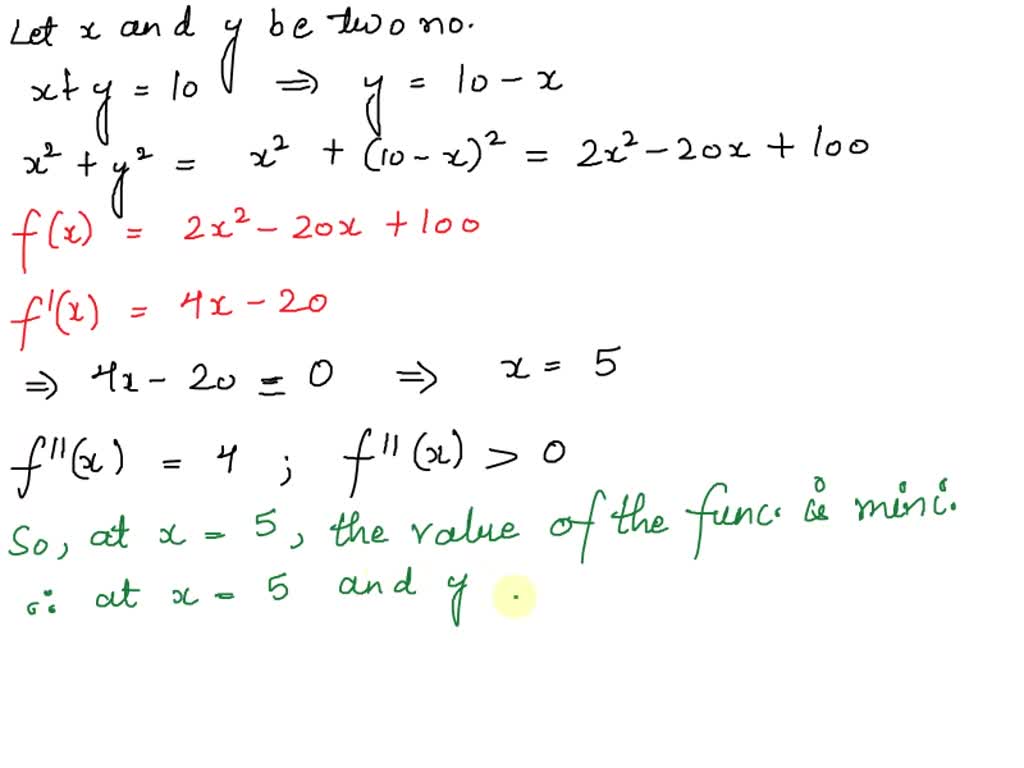 Let x and y be two no.
x+y = 10 ⇒ y = 10 - x
x² + y² = x² + (10 - x)² = 2x² - 20x + 100
f(x) = 2x² - 20x + 100
f'(x) = 4x - 20
⇒ 4x - 20 = 0 ⇒ x = 5
f''(x) = 4 ; f''(x) > 0
So, at x = 5, the value of the func. is mini.
∴ at x = 5 and y